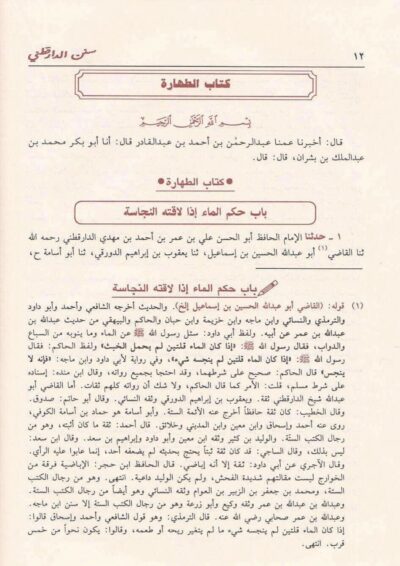 ١٢
سنن الدارقطني
كتاب الطهارة
بسم الله الرحمن الرحيم
قال: أخبرنا عمنا عبدالرحمٰن بن أحمد بن عبدالقادر قال: أنا أبو بكر محمد بن
عبدالملك بن بشران، قال: قال.
• كتاب الطهارة •
باب حكم الماء إذا لاقته النجاسة
١ ـ حدثنا الإمام الحافظ أبو الحسن علي بن عمر بن أحمد بن مهدي الدارقطني رحمه الله
ثنا القاضي(١) أبو عبدالله الحسين بن إسماعيل، ثنا يعقوب بن إبراهيم الدورقي، ثنا أبو أسامة ح،
باب حكم الماء إذا لاقته النجاسة
(١) قوله: (القاضي أبو عبدالله الحسين بن إسماعيل إلخ). والحديث أخرجه الشافعي وأحمد وأبو داود
والترمذي والنسائي وابن ماجه وابن خزيمة وابن حبان والحاكم والبيهقي من حديث عبدالله بن
عبدالله بن عمر عن أبيه. ولفظ أبي داود: سئل رسول الله ﷺ عن الماء وما ينوبه من السباع
والدواب، فقال رسول الله ﷺ: «إذا كان الماء قلتين لم يحمل الخبث» ولفظ الحاكم: فقال
رسول الله ﷺ: «إذا كان الماء قلتين لم ينجسه شيء»، وفي رواية لأبي داود وابن ماجه: «فإنه لا
ينجس» قال الحاكم: صحيح على شرطهما، وقد احتجا بجميع رواته، وقال ابن منده: إسناده
على شرط مسلم، قلت: الأمر كما قال الحاكم، ولا شك أن رواته كلهم ثقات. أما القاضي أبو
عبدالله شيخ الدارقطني ثقة. ويعقوب بن إبراهيم الدورقي وثقه النسائي. وقال أبو حاتم: صدوق.
وقال الخطيب: كان ثقة حافظاً أخرج عنه الأئمة الستة. وأبو أسامة هو حماد بن أسامة الكوفي،
روى عنه أحمد وإسحاق وابن معين وابن المديني وخلائق. قال أحمد: ثقة ما كان أثبته، وهو من
رجال الكتب الستّة. والوليد بن كثير وثقه ابن معين وأبو داود وإبراهيم بن سعد. وقال ابن سعد:
ليس بذلك، وقال الساجي: قد كان ثقة ثبتاً يحتج بحديثه لم يضعفه أحد، إنما عابوا عليه الرأي.
وقال الآجري عن أبي داود: ثقة إلا أنه إباضي. قال الحافظ ابن حجر: الإباضية فرقة من
الخوارج ليست مقالتهم شديدة الفحش، ولم يكن الوليد داعية. انتهى. وهو من رجال الكتب
الستة، ومحمد بن جعفر بن الزبير بن العوام وثقه النسائي وهو أيضاً من رجال الكتب الستة.
وعبدالله بن عبدالله بن عمر وثقه وكيع وأبو زرعة وهو من رجال الكتب الستة إلا سنن ابن ماجه.
وعبدالله بن عمر صحابي رضي الله عنه. قال الترمذي: وهو قول الشافعي وأحمد وإسحاق قالوا:
إذا كان الماء قلتين لم ينجسه شيء ما لم يتغير ريحه أو طعمه، وقالوا: يكون نحواً من خمس
قرب. انتهى.